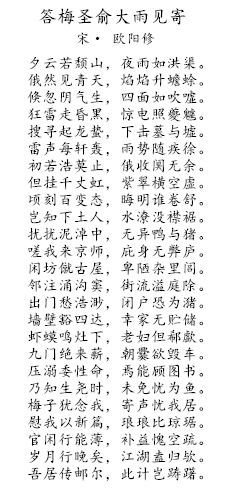 答梅圣俞大雨见寄
宋· 欧阳修
夕云若颓山，夜雨如洪渠。
俄然见青天，焰焰升蟾蜍。
倏忽阴气生，四面如吹嘘。
狂雷走昏黑，惊电照夔魖。
搜寻起龙蛰，下击墓与墟。
雷声每轩轰，雨势随疾徐。
初若浩莫止，俄收阒无余。
但挂千丈虹，紫翠横空虚。
顷刻百变态，晦明谁卷舒。
岂知下土人，水潦没襟裾。
扰扰泥淖中，无异鸭与猪。
嗟我来京师，庇身无弊庐。
闲坊僦古屋，卑陋杂里闾。
邻注涌沟窦，街流溢庭除。
出门愁浩渺，闭户恐为潴。
墙壁豁四达，幸家无贮储。
虾蟆鸣灶下，老妇但欷歔。
九门绝来薪，朝爨欲毁车。
压溺委性命，焉能顾图书。
乃知生尧时，未免忧为鱼。
梅子犹念我，寄声忧我居。
慰我以新篇，琅琅比琼琚。
官闲行能薄，补益愧空疏。
岁月行晚矣，江湖盍归欤。
吾居传邮尔，此计岂踌躇。